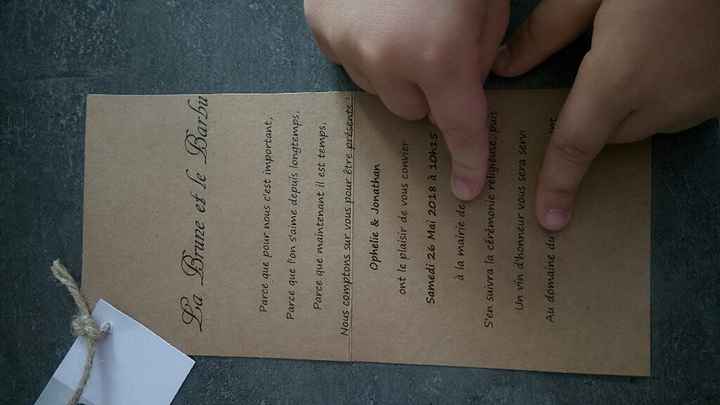 La Brune et le Barbu
Parce que pour nous c'est important,
Parce que l'on s'aime depuis longtemps,
Parce que maintenant il est temps,
Nous comptons sur vous pour être présents !
Ophelie & Jonathan
ont le plaisir de vous convier
Samedi 26 Mai 2018 à 10h15
à la mairie de
S'en suivra la cérémonie religieuse, puis
Un vin d'honneur vous sera servi
Au domaine du